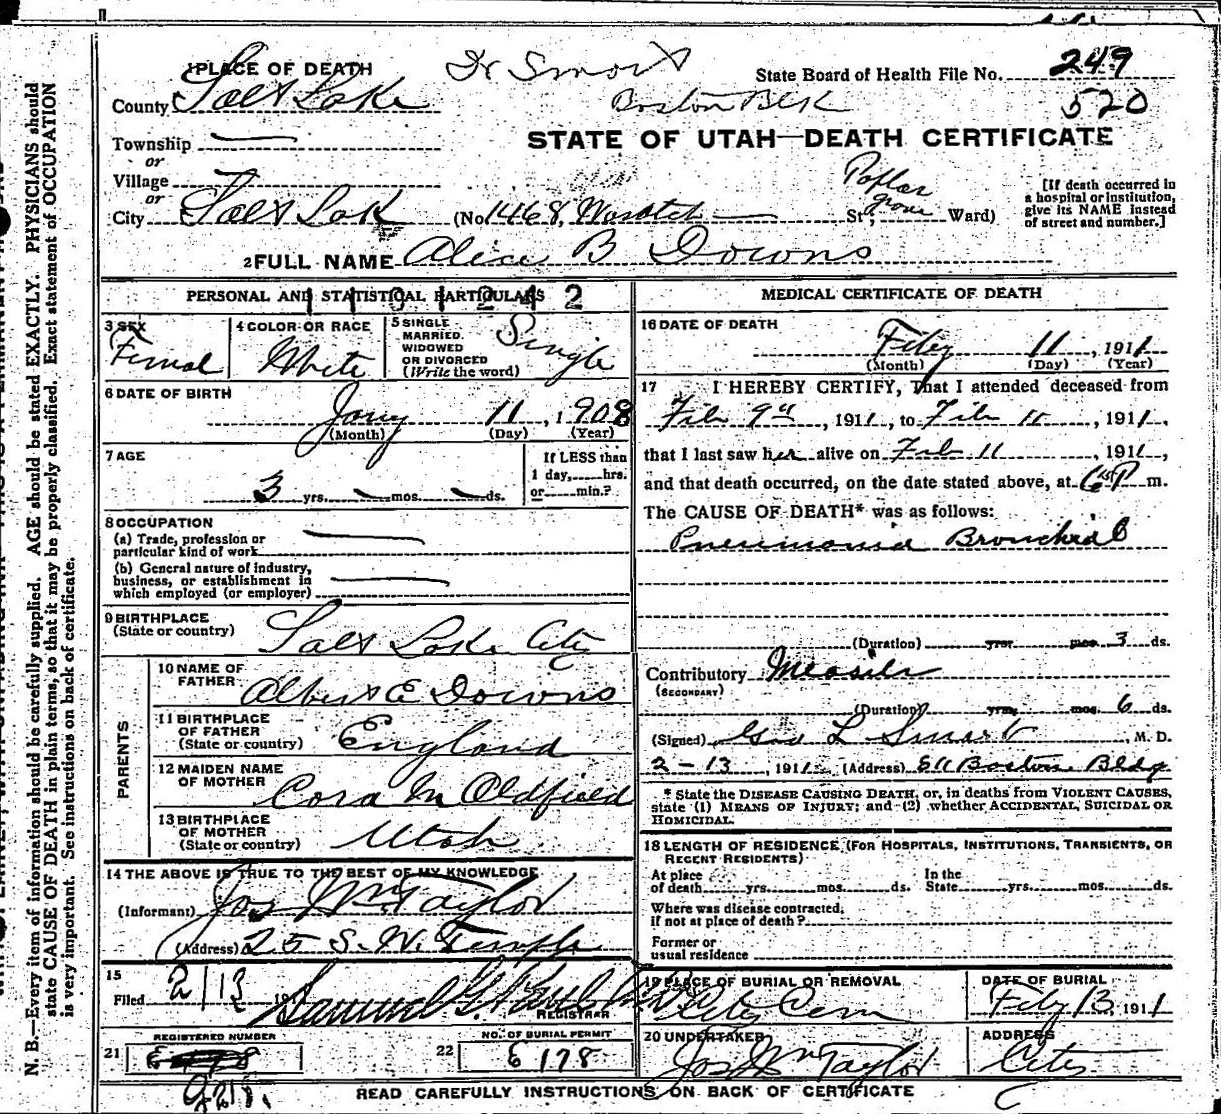 1 PLACE OF DEATH
Dr Smart
State Board of Health File No. 249
County Salt Lake
Boston Blk
520
STATE OF UTAH—DEATH CERTIFICATE
Township
or
Village
or
City Salt Lak (No. 1468, Wasatch St; Poplar grove Ward)
[If death occurred in
a hospital or institution,
give its NAME instead
of street and number.]
2 FULL NAME Alice B Downs
PERSONAL AND STATISTICAL PARTICULARS
3 SEX
Femal
4 COLOR OR RACE
White
5 SINGLE
MARRIED.
WIDOWED
OR DIVORCED
(Write the word)
Single
6 DATE OF BIRTH
Jany 11, 1908
(Month) (Day) (Year)
7 AGE
3 yrs. mos. ds.
If LESS than
1 day, hrs.
or min.?
8 OCCUPATION
(a) Trade, profession or
particular kind of work
(b) General nature of industry,
business, or establishment in
which employed (or employer)
9 BIRTHPLACE
(State or country)
Salt Lake City
PARENTS
10 NAME OF
FATHER
Albert E Downs
11 BIRTHPLACE
OF FATHER
(State or country)
England
12 MAIDEN NAME
OF MOTHER
Cora M Oldfield
13 BIRTHPLACE
OF MOTHER
(State or country)
Utah
14 THE ABOVE IS TRUE TO THE BEST OF MY KNOWLEDGE
(Informant) Jos Wm Taylor
(Address) 25 S. W. Temple
15
Filed 2/13 19
Samuel G. Paul
REGISTRAR
REGISTERED NUMBER
21
G218.
NO. OF BURIAL PERMIT
22 6178
MEDICAL CERTIFICATE OF DEATH
16 DATE OF DEATH
Feby 11, 1911
(Month) (Day) (Year)
17 I HEREBY CERTIFY, That I attended deceased from
Feb 9th, 1911, to Feb 11, 1911,
that I last saw her alive on Feb 11, 1911,
and that death occurred, on the date stated above, at P m.
The CAUSE OF DEATH* was as follows:
Pneumonia Bronchial
(Duration) yrs. mos. 3 ds.
Contributory Measles
(SECONDARY)
(Duration) yrs. mos. 6 ds.
(Signed) Geo L Smart, M. D.
2-13, 1911 (Address) 511 Boston Bldg
* State the DISEASE CAUSING DEATH, or, in deaths from VIOLENT CAUSES,
state (1) MEANS OF INJURY; and (2) whether ACCIDENTAL, SUICIDAL OR
HOMICIDAL.
18 LENGTH OF RESIDENCE (FOR HOSPITALS, INSTITUTIONS, TRANSIENTS, OR
RECENT RESIDENTS)
At place In the
of death yrs. mos. ds. State yrs. mos. ds.
Where was disease contracted,
if not at place of death?
Former or
usual residence
19 PLACE OF BURIAL OR REMOVAL
City Cem
DATE OF BURIAL
Feby 13, 1911
20 UNDERTAKER
Jos Wm Taylor
ADDRESS
City
READ CAREFULLY INSTRUCTIONS ON BACK OF CERTIFICATE
N. B.—Every item of information should be carefully supplied. AGE should be stated EXACTLY. PHYSICIANS should
state CAUSE OF DEATH in plain terms, so that it may be properly classified. Exact statement of OCCUPATION
is very important. See instructions on back of certificate.